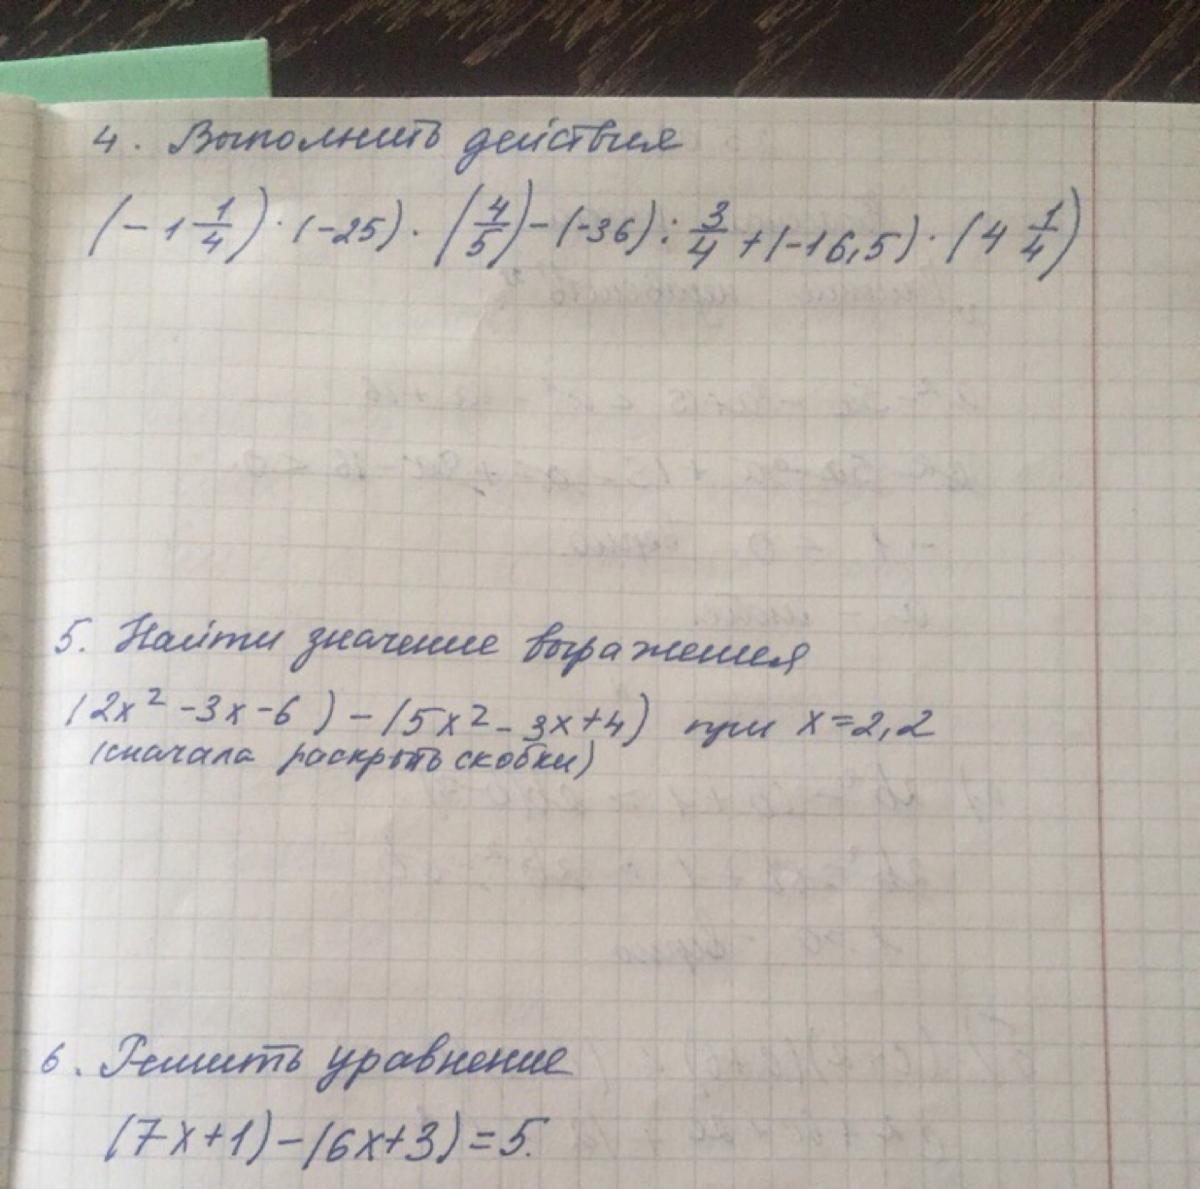 4. Выполнить действия
(-1 1/4) · (-25) · (4/5) - (-36) : 3/4 + (-16,5) · (4 1/4)
5. Найти значение выражения
(2x² - 3x - 6) - (5x² - 3x + 4) при x = 2,2
(сначала раскрыть скобки)
6. Решить уравнение
(7x+1) - (6x+3) = 5.